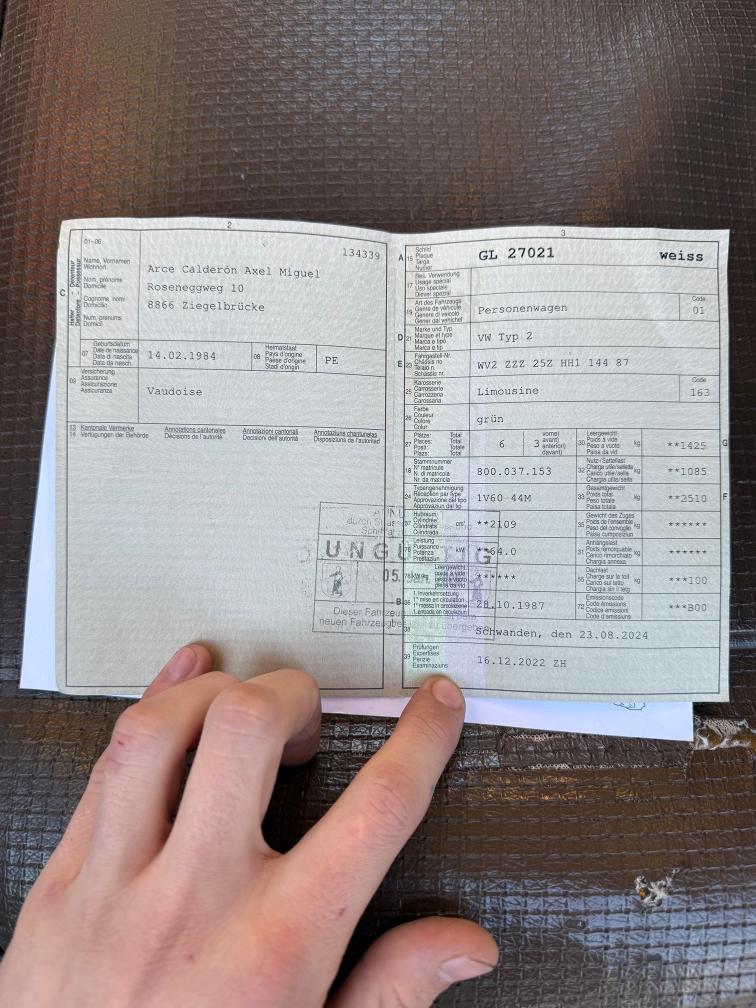 2
01-06
134339
C
Halter - Détenteur
Detentore - Possessur
Name, Vornamen
Wohnort
Nom, prénoms
Domicile
Cognome, nomi
Domicilio
Num, prenums
Domicil
Arce Calderón Axel Miguel
Roseneggweg 10
8866 Ziegelbrücke
07
Geburtsdatum
Date de naissance
Data di nascita
Data da nasch.
14.02.1984
08
Heimatstaat
Pays d'origine
Paese d'origine
Stadi d'origin
PE
09
Versicherung
Assurance
Assicurazione
Assicuranza
Vaudoise
13 Kantonale Vermerke
14 Verfügungen der Behörde
Annotations cantonales
Décisions de l'autorité
Annotazioni cantonali
Decisioni dell'autorità
Annotaziuns chantunalas
Disposiziuns da l'autoritad
UNGÜLTIG
05.
Dieser Fahrzeug
neuen Fahrzeug
3
A 15
Schild
Plaque
Targa
Numer
GL 27021 weiss
17
Bes. Verwendung
Usage spécial
Uso speciale
Diever spezial
19
Art des Fahrzeugs
Genre de véhicule
Genere di veicolo
Gener dal vehichel
Personenwagen
Code
01
D 21
Marke und Typ
Marque et type
Marca e tipo
Marca e tip
VW Typ 2
E 23
Fahrgestell-Nr.
Châssis no
Telaio n.
Schassis nr.
WV2 ZZZ 25Z HH1 144 87
25
Karosserie
Carrosserie
Carrozzeria
Carossaria
Limousine
Code
163
26
Farbe
Couleur
Colore
Colur
grün
27
Plätze: Total
Places: Total
Posti: Totale
Plazs: Total
6
3
vorne)
avant)
anteriori)
davant)
30
Leergewicht
Poids à vide
Peso a vuoto
Paisa da vid
kg
**1425
G
18
Stammnummer
N° matricule
N. di matricola
Nr. da matricla
800.037.153
32
Nutz-/Sattellast
Charge utile/sellette
Carico utile/sella
Chargia utila/sella
kg
**1085
24
Typengenehmigung
Réception par type
Approvazione del tipo
Approvaziun dal tip
1V60 44M
33
Gesamtgewicht
Poids total
Peso totale
Paisa totala
kg
**2510
F
Hubraum
Cylindrée
Cilindrata
Cilindrada
cm³
**2109
35
Gewicht des Zuges
Poids de l'ensemble
Peso del convoglio
Paisa cumposiziun
kg
******
Leistung
Puissance
Potenza
Prestaziun
kW
**64.0
31
Anhängelast
Poids remorquable
Carico rimorchiato
Chargia annexa
kg
******
Leergewicht
poids à vide
peso a vuoto
paisa da vid
*****
55
Dachlast
Charge sur le toit
Carico sul tetto
Chargia sin il tetg
kg
***100
B 36
1. Inverkehrsetzung
1re mise en circulation
1a messa in circolazione
1. entrada en circulaziun
28.10.1987
72
Emissionscode
Code émissions
Codice emissioni
Code d'emissiuns
***B00
38
Schwanden, den 23.08.2024
39
Prüfungen
Expertises
Perizie
Examinaziuns
16.12.2022 ZH